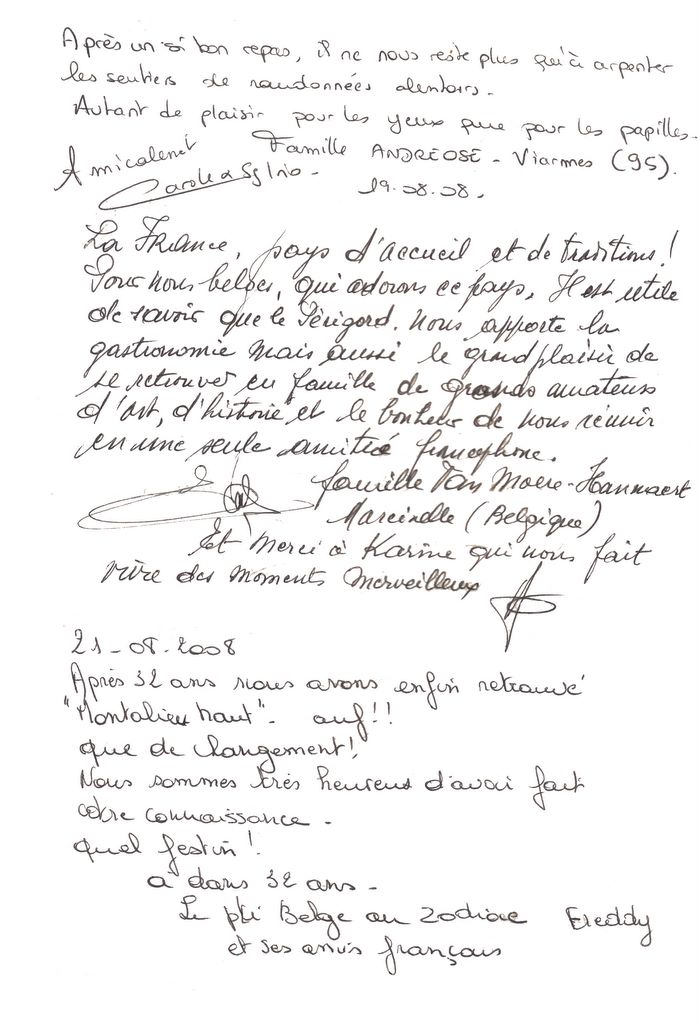 Après un si bon repas, il ne nous reste plus qu'à arpenter
les sentiers de randonnées alentours.
Autant de plaisir pour les yeux que pour les papilles.
Famille ANDREOSE - Viarmes (95).
Amicalement
Carole & Sylvio.
19.08.08.
La France, pays d'accueil et de traditions!
Pour nous belges, qui adorons ce pays, Il est utile
de savoir que le Périgord. Nous apporte la
gastronomie mais aussi le grand plaisir de
se retrouver en famille de grands amateurs
d'art, d'histoire et le bonheur de nous réunir
en une seule amitié francophone.
famille Van Moere-Hannaert
Marcinelle (Belgique)
Et Merci à Karine qui nous fait
vivre des moments merveilleux
21-08-2008
Après 32 ans nous avons enfin retrouvé
"Montalieu haut". ouf!!
que de changement!
Nous sommes très heureux d'avoir fait
votre connaissance.
quel festin!
à dans 32 ans.
Le pti Belge au Zodiac Freddy
et ses amis français